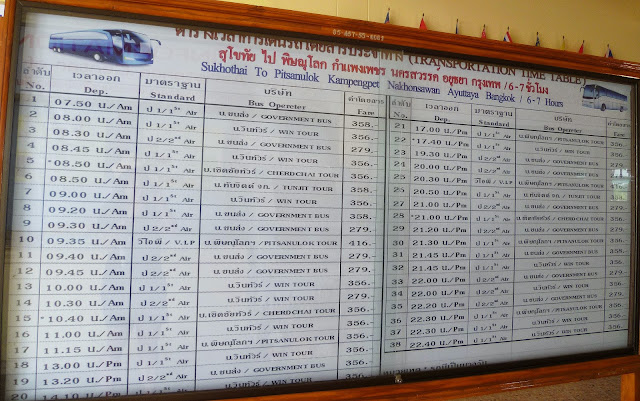 05-467-55-0001
ตารางเวลาการเดินรถโดยสารประจำทาง (TRANSPORTATION TIME TABLE)
สุโขทัย ไป พิษณุโลก กำแพงเพชร นครสวรรค์ อยุธยา กรุงเทพ / 6-7 ชั่วโมง
Sukhothai To Pitsanulok Kampengpet Nakhonsawan Ayuttaya Bangkok / 6-7 Hours
ลำดับ No. เวลาออก Dep. มาตราฐาน Standard บริษัท Bus Opereter ค่าโดยสาร Fare
1 07.50 น./Am ป 1/1St Air บ.ขนส่ง / GOVERNMENT BUS 358.-
2 08.00 น./Am ป 1/1St Air บ.วินทัวร์ / WIN TOUR 356.-
3 08.30 น./Am ป 2/2nd Air บ.ขนส่ง / GOVERNMENT BUS 279.-
4 08.45 น./Am ป 1/1St Air บ.วินทัวร์ / WIN TOUR 356.-
5 *08.50 น./Am ป 1/1St Air บ.เชิดชัยทัวร์ / CHERDCHAI TOUR 356.-
6 08.50 น./Am ป 1/1St Air บ.ทันจิตต์ จก. / TUNJIT TOUR
7 09.00 น./Am ป 1/1St Air บ.วินทัวร์ / WIN TOUR 356.-
8 09.20 น./Am ป 1/1St Air บ.ขนส่ง / GOVERNMENT BUS 358.-
9 09.30 น./Am ป 2/2nd Air บ.ขนส่ง / GOVERNMENT BUS 279.-
10 09.35 น./Am วีไอพี / V.I.P บ.พิษณุโลกฯ / PITSANULOK TOUR 416.-
11 09.40 น./Am บ.ขนส่ง / GOVERNMENT BUS 279.-
12 09.45 น./Am ป 2/2nd Air บ.ขนส่ง / GOVERNMENT BUS 279.-
13 10.00 น./Am ป 1/1St Air บ.วินทัวร์ / WIN TOUR 356.-
14 10.30 น./Am ป 2/2nd Air บ.วินทัวร์ / WIN TOUR 279.-
15 *10.40 น./Am ป 1/1St Air บ.เชิดชัยทัวร์ / CHERDCHAI TOUR 356.-
16 11.00 น./Am ป 1/1St Air บ.วินทัวร์ / WIN TOUR 356.-
17 11.15 น./Am ป 1/1St Air บ.พิษณุโลกฯ / PITSANULOK TOUR 356.-
18 13.00 น./Pm ป 1/1St Air บ.วินทัวร์ / WIN TOUR 356.-
19 13.20 น./Pm ป 2/2nd Air บ.ขนส่ง / GOVERNMENT BUS
20 14.10 น./Pm บ.วินทัวร์ / WIN TOUR
ลำดับ No. เวลาออก Dep. มาตราฐาน Standard บริษัท Bus Operator
21 17.00 น./Pm ป 1/1St Air บ.พิษณุโลกฯ / PITSANULOK TOUR
22 *17.40 น./Pm ป 1/1St Air บ.วินทัวร์ / WIN TOUR
23 19.30 น./Pm บ.ขนส่ง / GOVERNMENT BUS
24 20.00 น./Pm ป 2/2nd Air บ.ขนส่ง / GOVERNMENT BUS
25 20.30 น./Pm วีไอพี / V.I.P บ.พิษณุโลกฯ / PITSANULOK TOUR
26 20.50 น./Pm ป 1/1St Air TUNJIT TOUR
27 21.00 น./Pm ป 1/1St Air บ.วินทัวร์ / WIN TOUR
28 *21.00 น./Pm ป 1/1St Air บ.เชิดชัยทัวร์ / CHERDCHAI TOUR
29 21.20 น./Pm ป 2/2nd Air บ.ขนส่ง / GOVERNMENT BUS
30 21.30 น./Pm ป 1/1St Air บ.พิษณุโลกฯ / PITSANULOK TOUR
31 21.45 น./Pm บ.วินทัวร์ / WIN TOUR
32 21.45 น./Pm บ.ขนส่ง / GOVERNMENT BUS
33 22.00 น./Pm บ.วินทัวร์ / WIN TOUR
34 22.00 น./Pm ป 2/2nd Air บ.ขนส่ง / GOVERNMENT BUS
35 22.20 น./Pm ป 1/1St Air บ.พิษณุโลกฯ / PITSANULOK TOUR
36 22.30 น./Pm ป 1/1St Air บ.วินทัวร์ / WIN TOUR
37 22.30 น./Pm ป 1/1St Air บ.วินทัวร์ / WIN TOUR
38 22.40 น./Pm ป 1/1St Air บ.วินทัวร์ / WIN TOUR